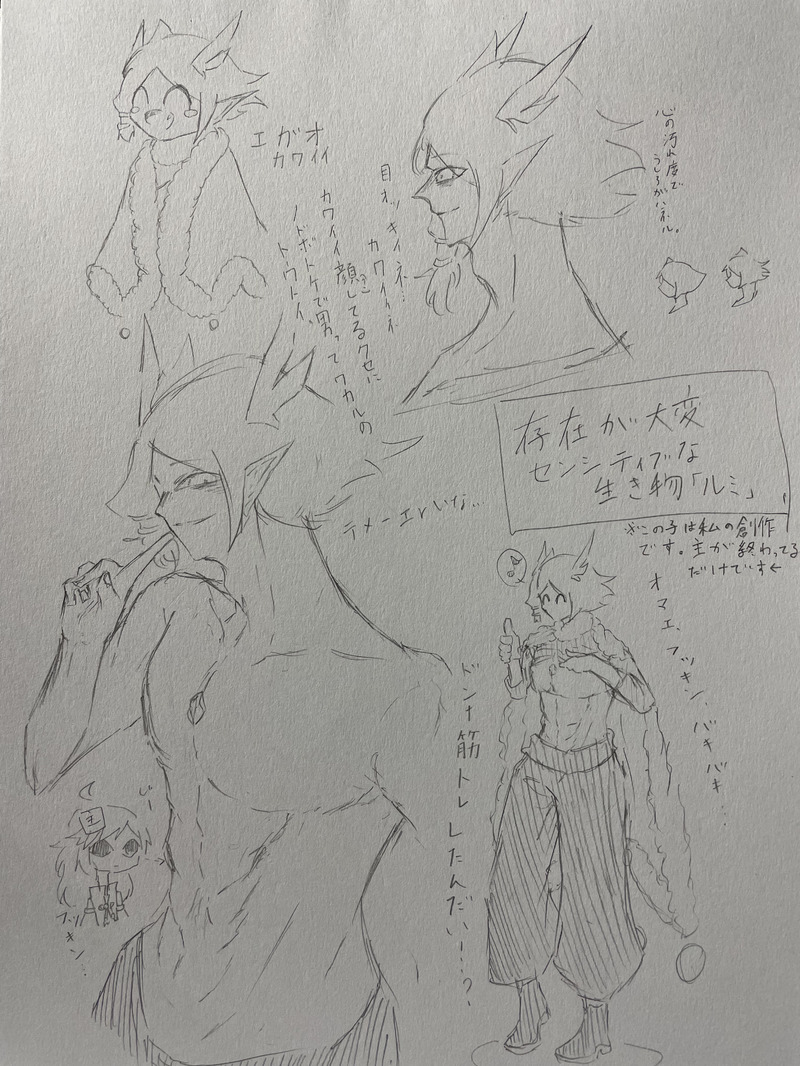 エガオ
カワイイ
目オッキイネ…
カワイイネ
カワイイ顔してるクセに
ノドボトケで男ってワカルの
トウトイ、
心の汚れ度で
うしろがハネル。
存在が大変
センシティブな
生き物「ルミ」
※この子は私の創作
です。主が終わってる
だけです←
テメーエ
オマエ、フッキン、バキバキ…
ドンナ筋トレしたんだい…?
じー
フッキン…